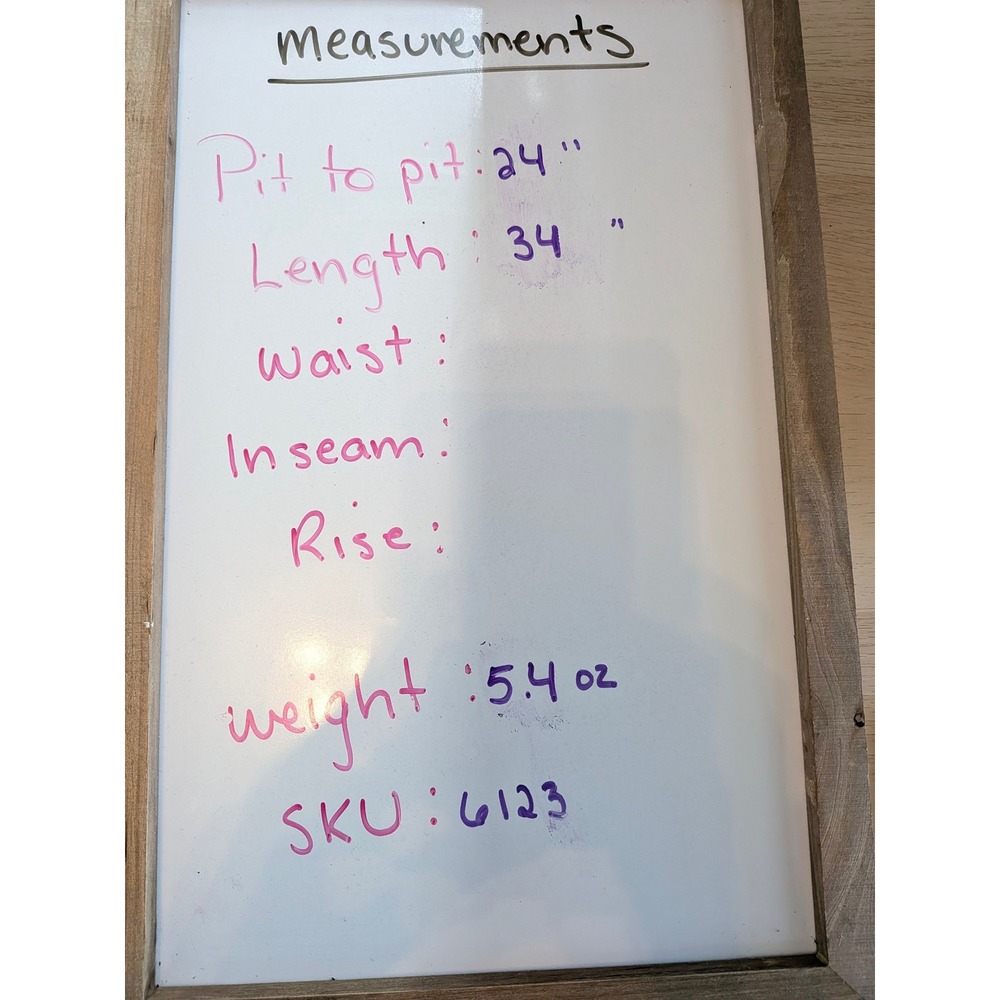 measurements
Pit to pit: 24"
Length: 34 "
Waist:
Inseam:
Rise:
weight: 5.4 oz
SKU: 6123